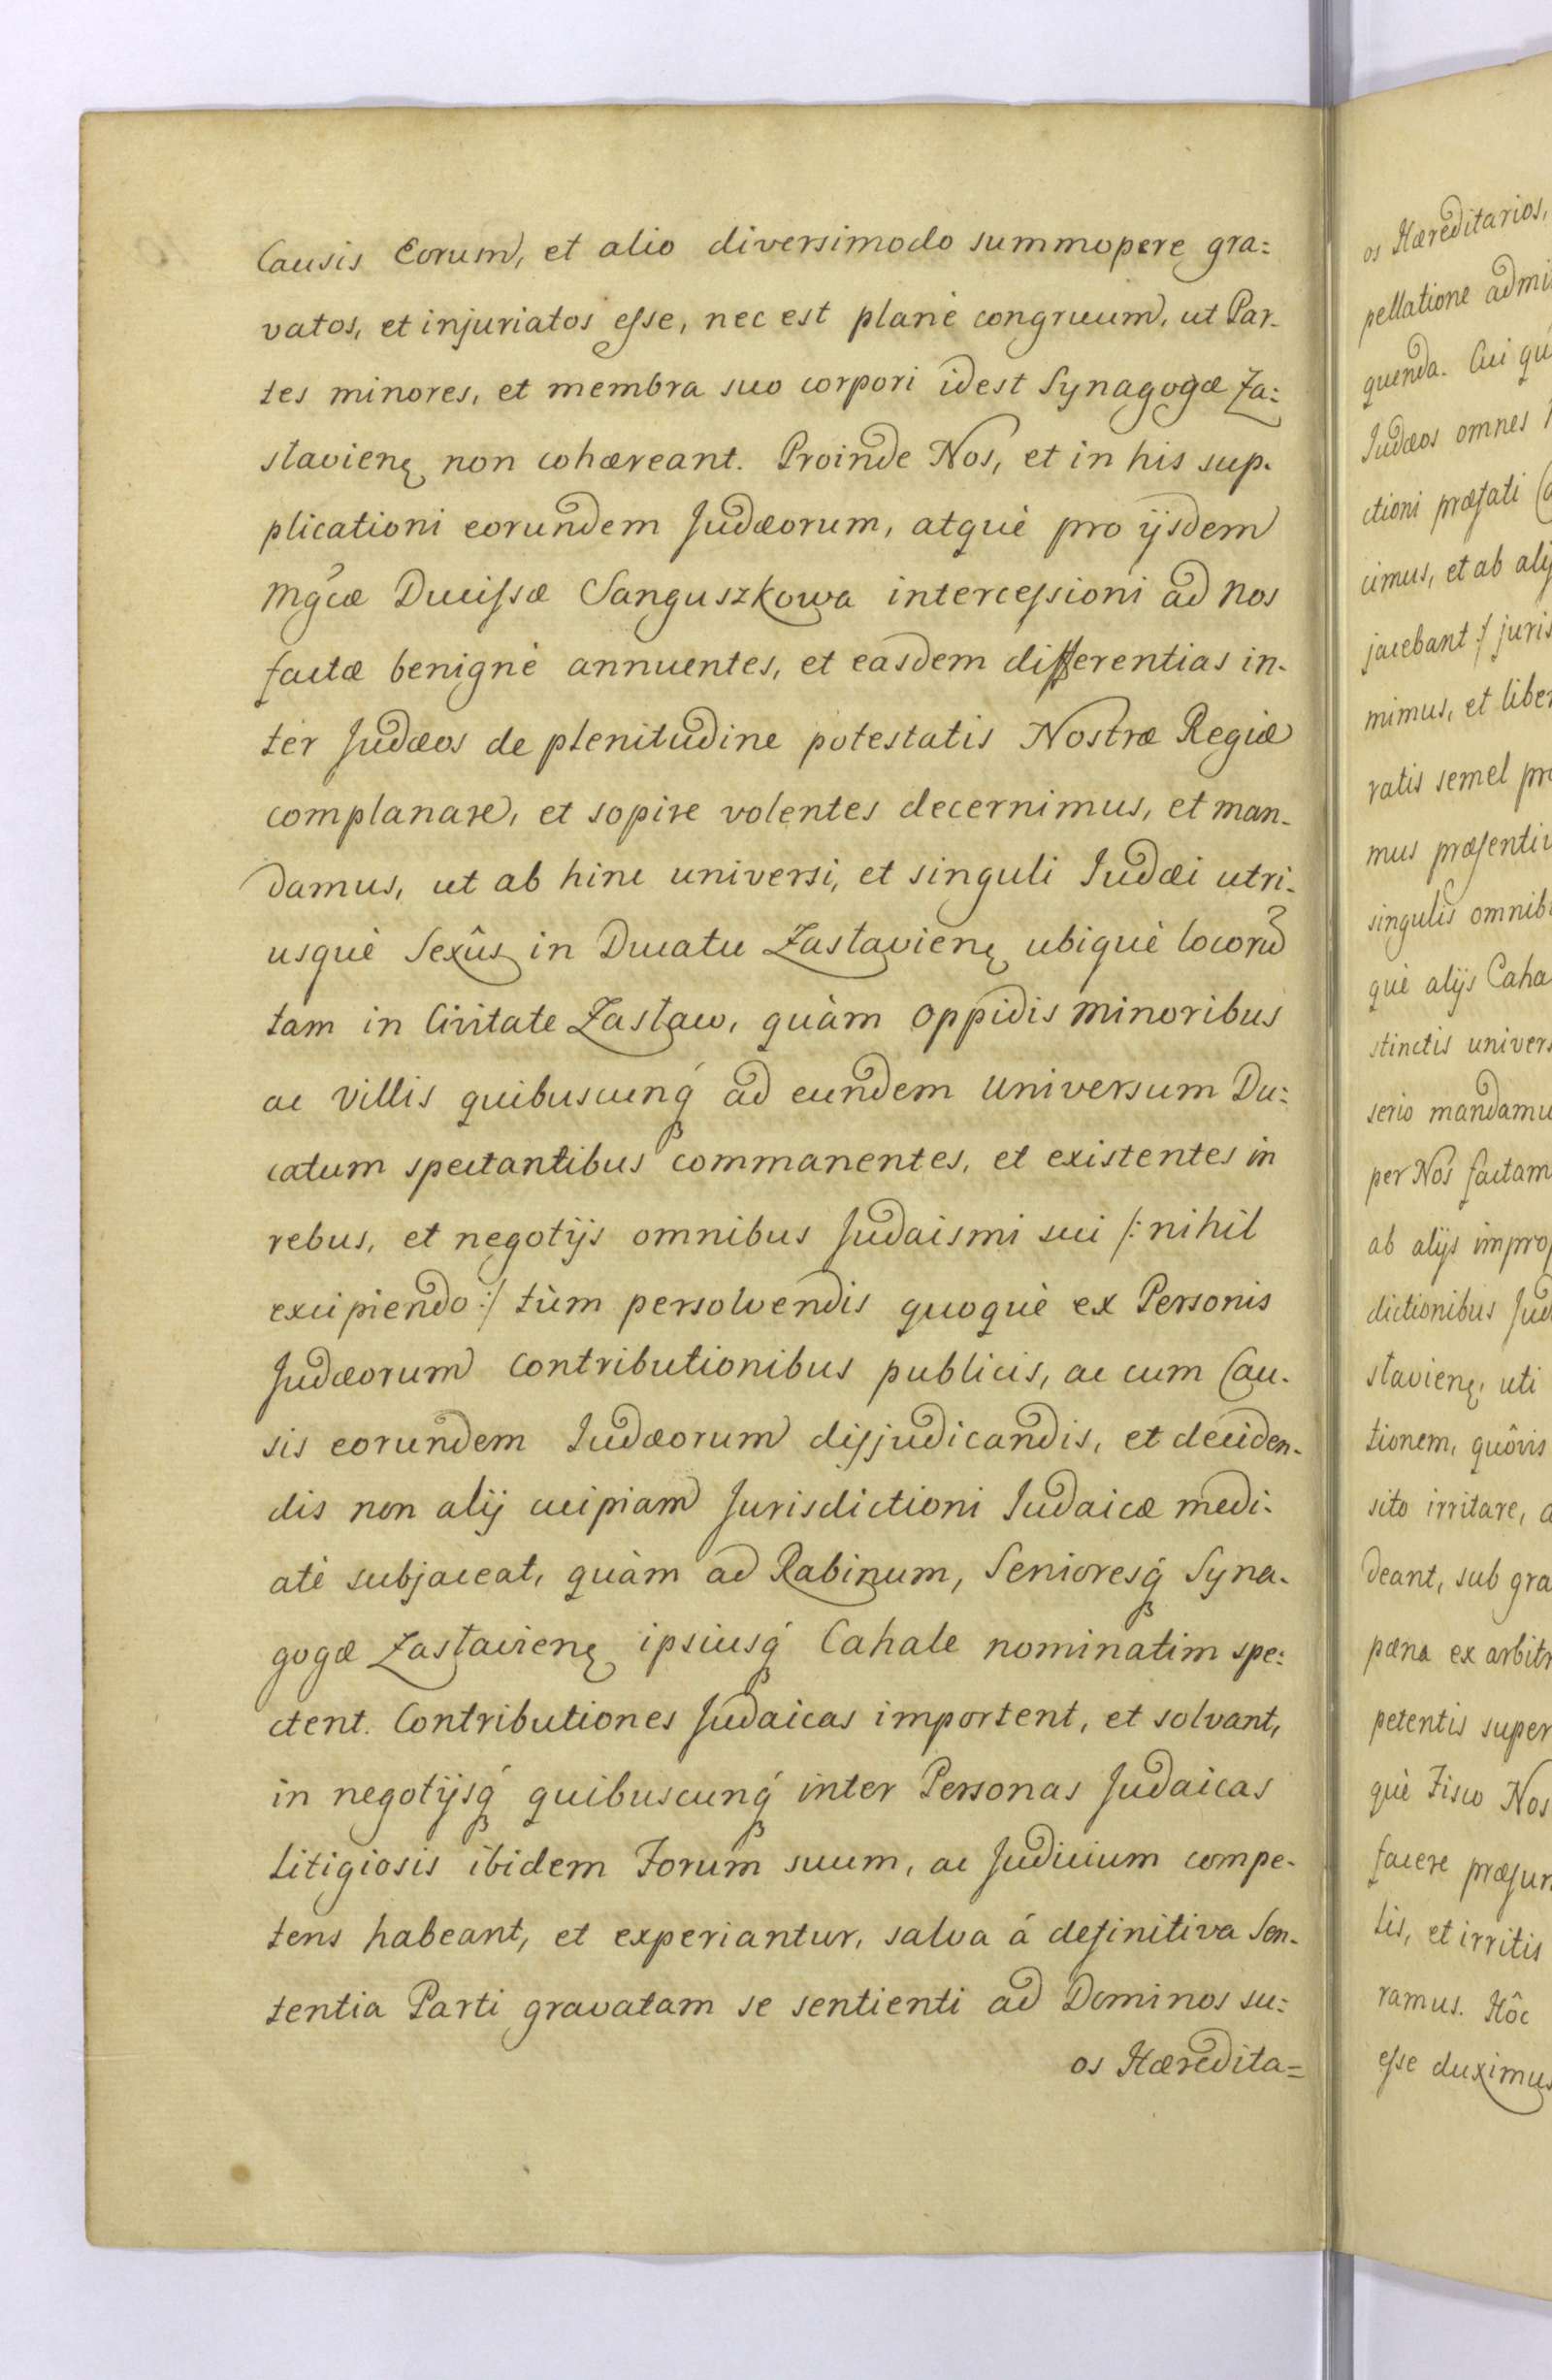 Causis Eorum, et alio diversimodo summopere gra:
vatos, et injuriatos esse, nec est planè congruum, ut Par-
tes minores, et membra suo corpori idest Synagogæ Za:
slavienę non cohæreant. Proinde Nos, et in his sup-
plicationi eorundem Judæorum, atquè pro ijsdem
Mgcæ Ducissæ Sanguszkowa intercessioni ad Nos
factæ benignè annuentes, et easdem differentias in-
ter Judæos de plenitudine potestatis Nostræ Regiæ
complanare, et sopire volentes decernimus, et man-
damus, ut ab hinc universi, et singuli Judæi utri-
usquè Sexûs in Ducatu Zaslavienę ubiquè locorũ
tam in Civitate Zaslaw, quàm Oppidis minoribus
ac Villis quibuscunq́ ad eundem Universum Du:
catum spectantibus commanentes, et existentes in
rebus, et negotijs omnibus Judaismi sui /: nihil
excipiendo :/ tùm persolvendis quoquè ex Personis
Judæorum Contributionibus publicis, ac cum Cau-
sis eorundem Judæorum disjudicandis, et deciden-
dis non alij cuipiam Jurisdictioni Judaicæ medi-
atè subjaceat, quàm ad Rabinum, Senioresq́ Syna-
gogæ Zaslavienę ipsiusq́ Cahale nominatim spe:
ctent. Contributiones Judaicas importent, et solvant,
in negotijsq́ quibuscunq́ inter Personas Judaicas
litigiosis ibidem Forum suum, ac Judicium compe-
tens habeant, et experiantur, salva á definitiva Sen-
tentia Parti gravatam se sentienti ad Dominos su:
os Hæredita=
os Hæreditarios,
pellatione admi
quenda. Cui qu
Judæos omnes
ctioni præfati
cimus, et ab alij
jacebant :/ juris
mimus, et liber
ratis semel pr
mus præsenti
singulis omnib
què alijs Caha
stinctis univers
serio mandamu
per Nos factam
ab alijs impro
dictionibus Jud
slavienę, uti
tionem, quôvis
sito irritare, a
deant, sub gra
pæna ex arbitr
petentis super
què Fisco Nos
facere præsum
tis, et irritis
ramus. Hôc
esse duximus